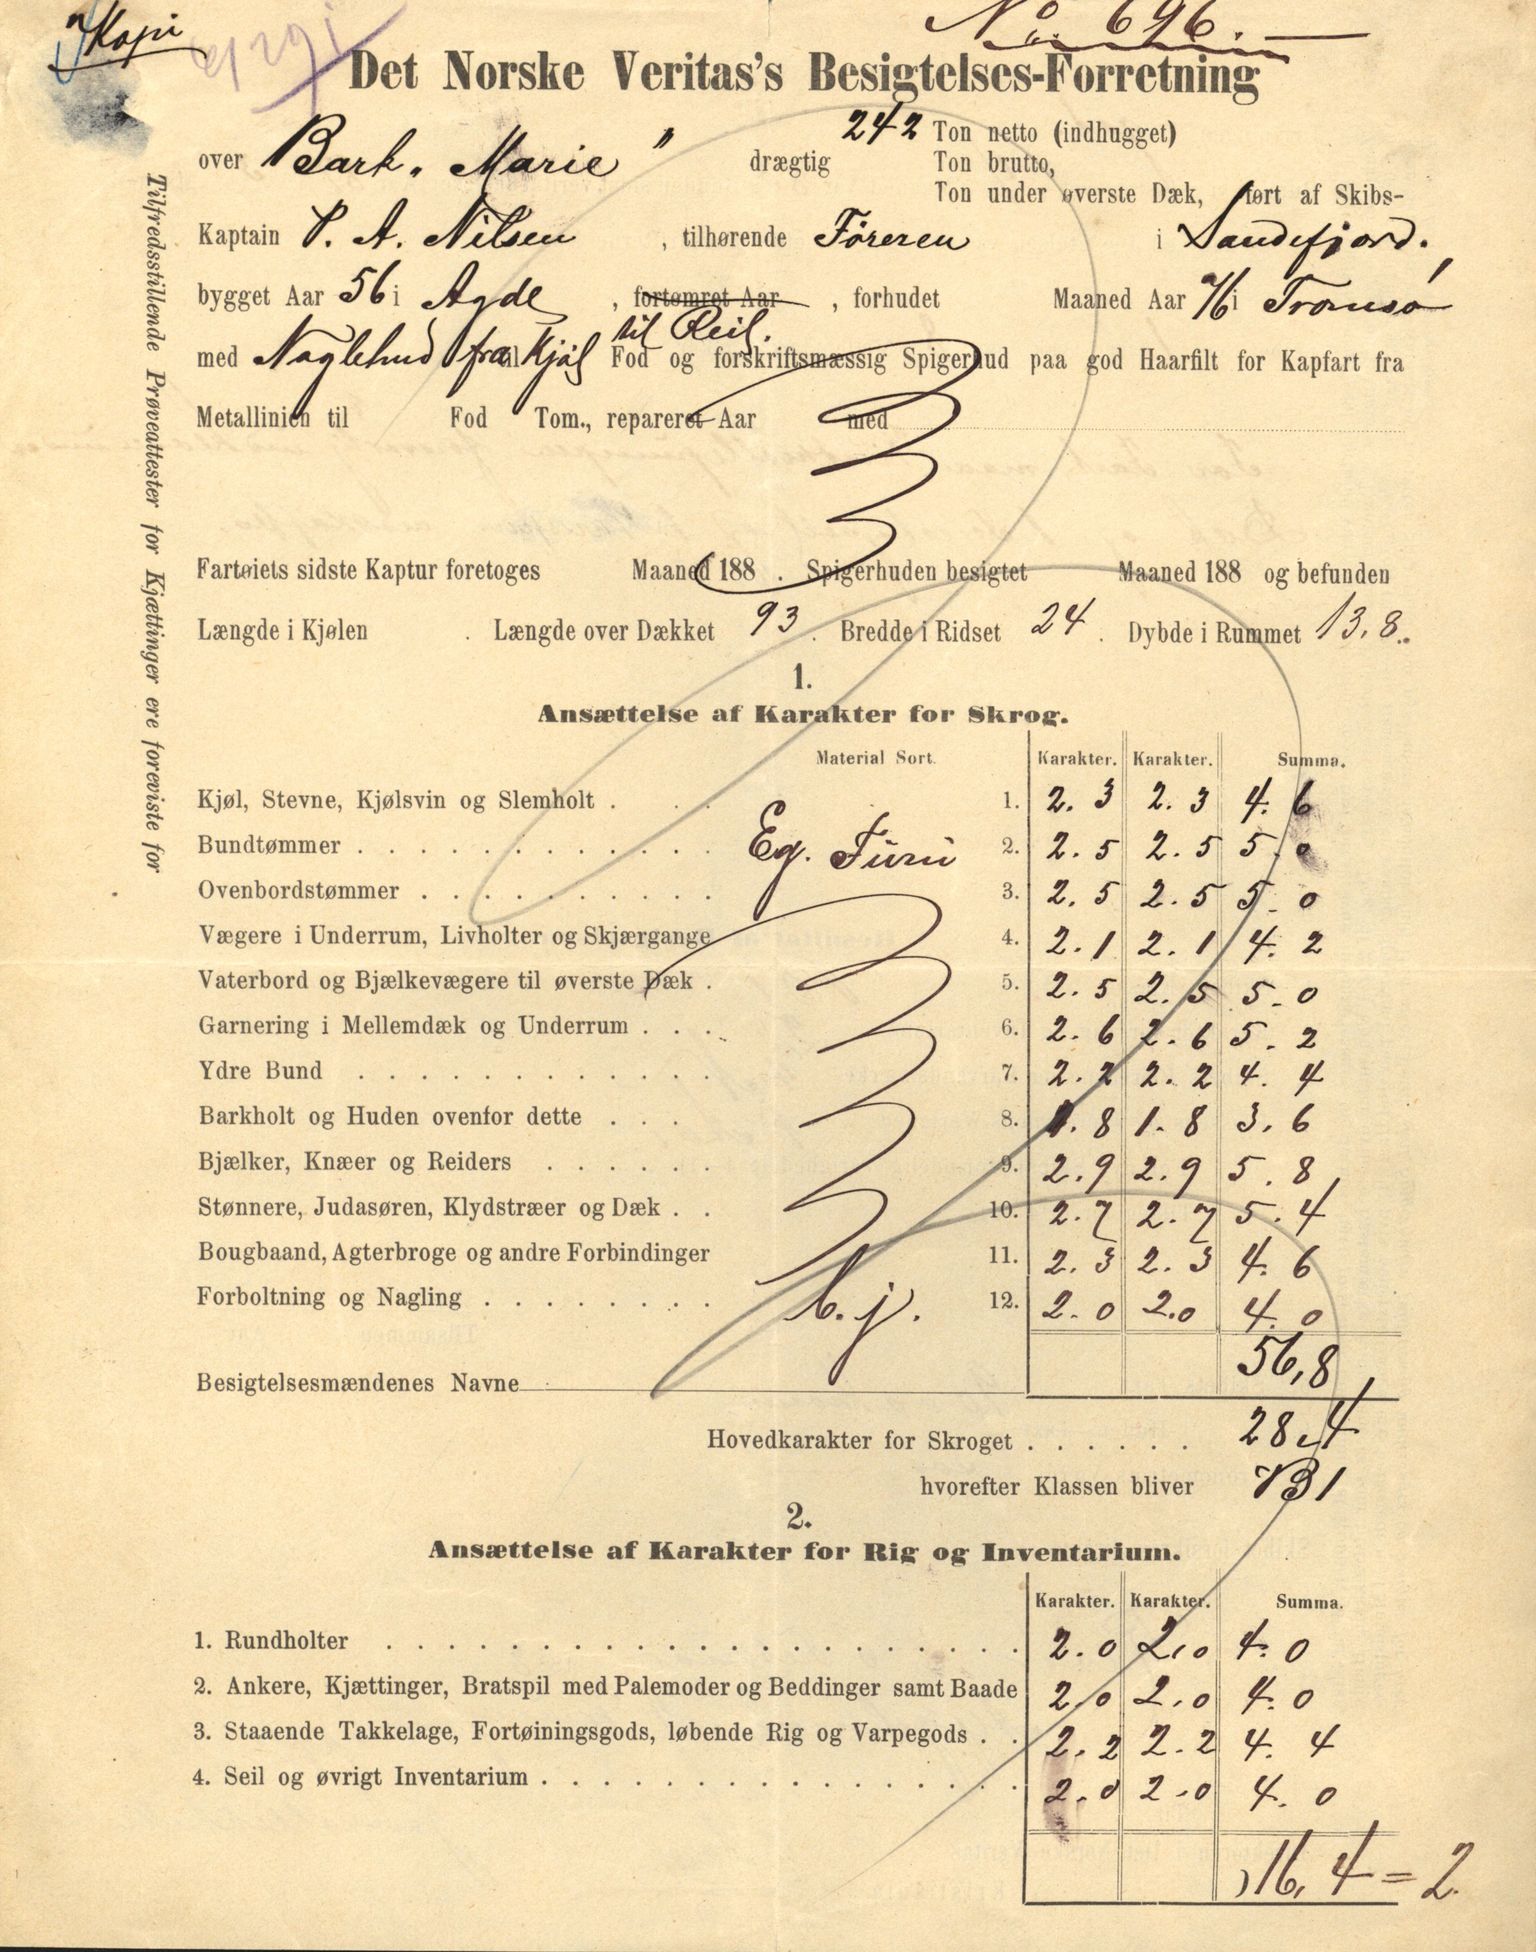 Kopi
No 696.
Det Norske Veritas's Besigtelses-Forretning
over Bark. Marie" drægtig 242 Ton netto (indhugget)
Ton brutto,
Ton under øverste Dæk, ført af Skibs-
Kaptain P. A. Nilsen , tilhørende Föreren i Sandefjord.
bygget Aar 56 i Agde , fortømret Aar , forhudet Maaned Aar i Tromsø
til Reil.
med Naglehud fra Kjöl Fod og forskriftsmæssig Spigerhud paa god Haarfilt for Kapfart fra
Metallinien til Fod Tom., repareret Aar med
Fartøiets sidste Kaptur foretoges Maaned 188 . Spigerhuden besigtet Maaned 188 og befunden
Længde i Kjølen . Længde over Dækket 93 . Bredde i Ridset 24 . Dybde i Rummet 13,8.
1.
Ansættelse af Karakter for Skrog.
Material Sort. Karakter. Karakter. Summa.
Kjøl, Stevne, Kjølsvin og Slemholt . . . 1. 2.3 2.3 4.6
Bundtømmer . . . Eg. Furu 2. 2.5 2.5 5.0
Ovenbordstømmer . . . 3. 2.5 2.5 5.0
Vægere i Underrum, Livholter og Skjærgange 4. 2.1 2.1 4.2
Vaterbord og Bjælkevægere til øverste Dæk . 5. 2.5 2.5 5.0
Garnering i Mellemdæk og Underrum . . . 6. 2.6 2.6 5.2
Ydre Bund . . . 7. 2.2 2.2 4.4
Barkholt og Huden ovenfor dette . . . 8. 1.8 1.8 3.6
Bjælker, Knæer og Reiders . . . 9. 2.9 2.9 5.8
Stønnere, Judasøren, Klydstræer og Dæk . . 10. 2.7 2.7 5.4
Bougbaand, Agterbroge og andre Forbindinger 11. 2.3 2.3 4.6
Forboltning og Nagling . . . 12. 2.0 2.0 4.0
56,8
Besigtelsesmændenes Navne
Hovedkarakter for Skroget . . . 28,4
hvorefter Klassen bliver B1
2.
Ansættelse af Karakter for Rig og Inventarium.
Karakter. Karakter. Summa.
1. Rundholter . . . 2.0 2.0 4.0
2. Ankere, Kjættinger, Bratspil med Palemoder og Beddinger samt Baade 2.0 2.0 4.0
3. Staaende Takkelage, Fortøiningsgods, løbende Rig og Varpegods . . 2.2 2.2 4.4
4. Seil og øvrigt Inventarium . . . 2.0 2.0 4.0
16,4 = 2.
Tilfredsstillende Prøveattester for Kjættinger ere foreviste for